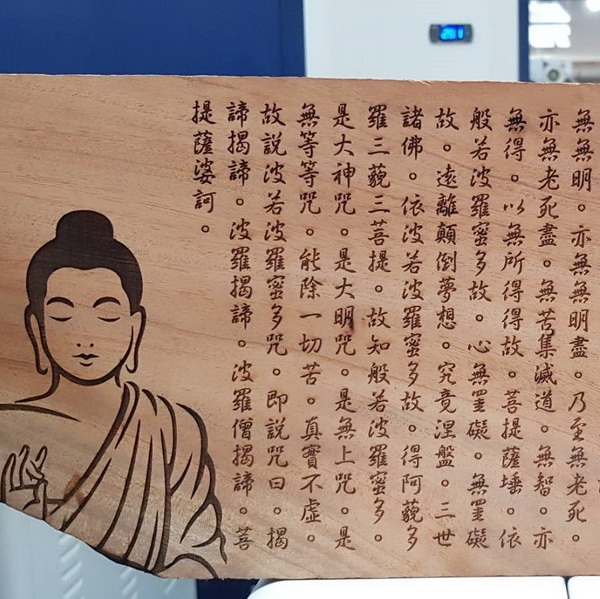 無無明。亦無無明盡。乃至無老死。
亦無老死盡。無苦集滅道。無智。亦
無得。以無所得得故。菩提薩埵。依
般若波羅蜜多故。心無罣礙。無罣礙
故。遠離顛倒夢想。究竟涅盤。三世
諸佛。依波若波羅蜜多故。得阿藐多
羅三藐三菩提。故知般若波羅蜜多。
是大神咒。是大明咒。是無上咒。是
無等等咒。能除一切苦。真實不虛。
故説波若波羅蜜多咒。即説咒曰。揭
諦揭諦。波羅揭諦。波羅僧揭諦。菩
提薩婆訶。